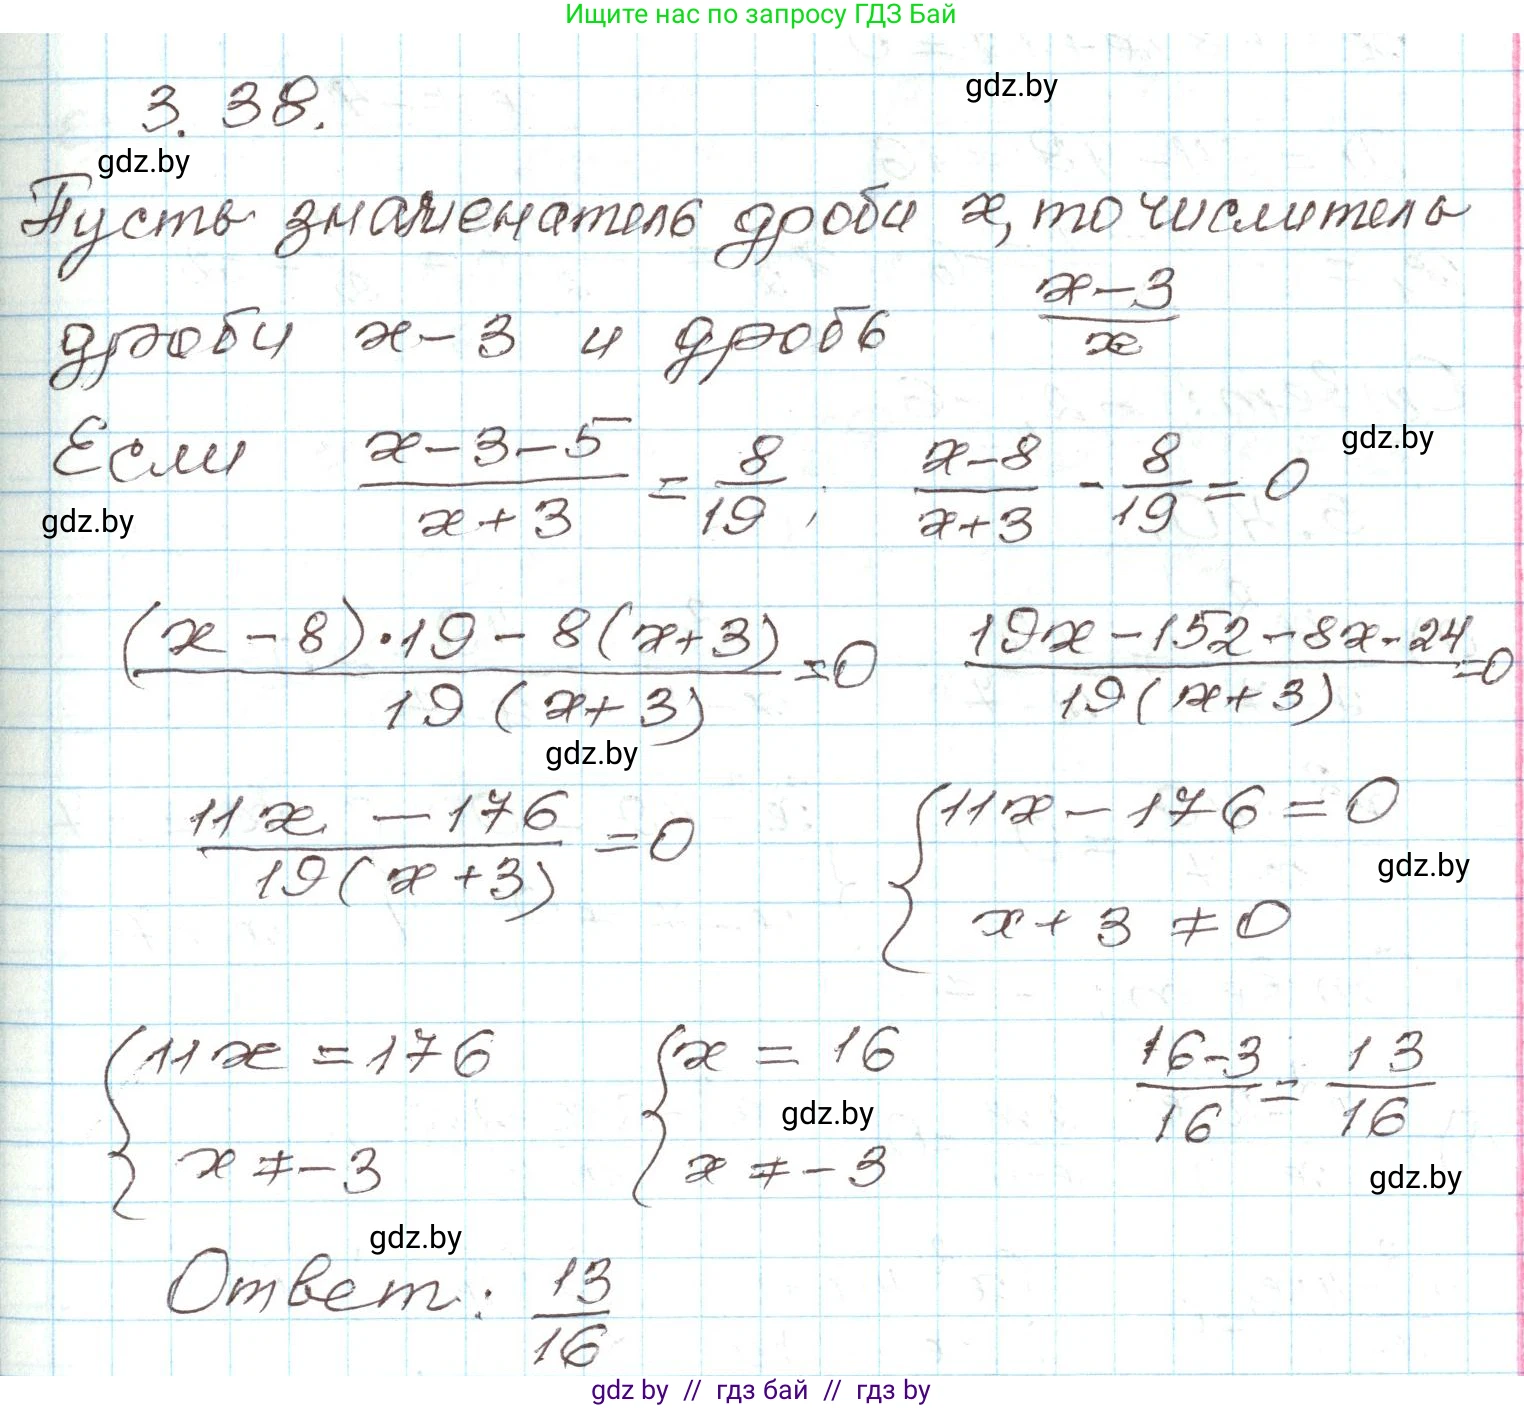 Ищите нас по запросу ГДЗ Бай
gdz.by
3.38.
gdz.by
Пусть знаменатель дроби x, то числитель
дроби x-3 и дробь (x-3)/x
Если (x-3-5)/(x+3) = 8/19; (x-8)/(x+3) - 8/19 = 0
gdz.by
gdz.by
((x-8)·19-8(x+3))/(19(x+3)) = 0 (19x-152-8x-24)/(19(x+3)) = 0
gdz.by
(11x-176)/(19(x+3)) = 0 { 11x-176=0
gdz.by
x+3≠0
{ 11x=176 { x=16 (16-3)/16 = 13/16
gdz.by
x≠-3 x≠-3
gdz.by
gdz.by
Ответ: 13/16
gdz by // гдз бай // гдз by